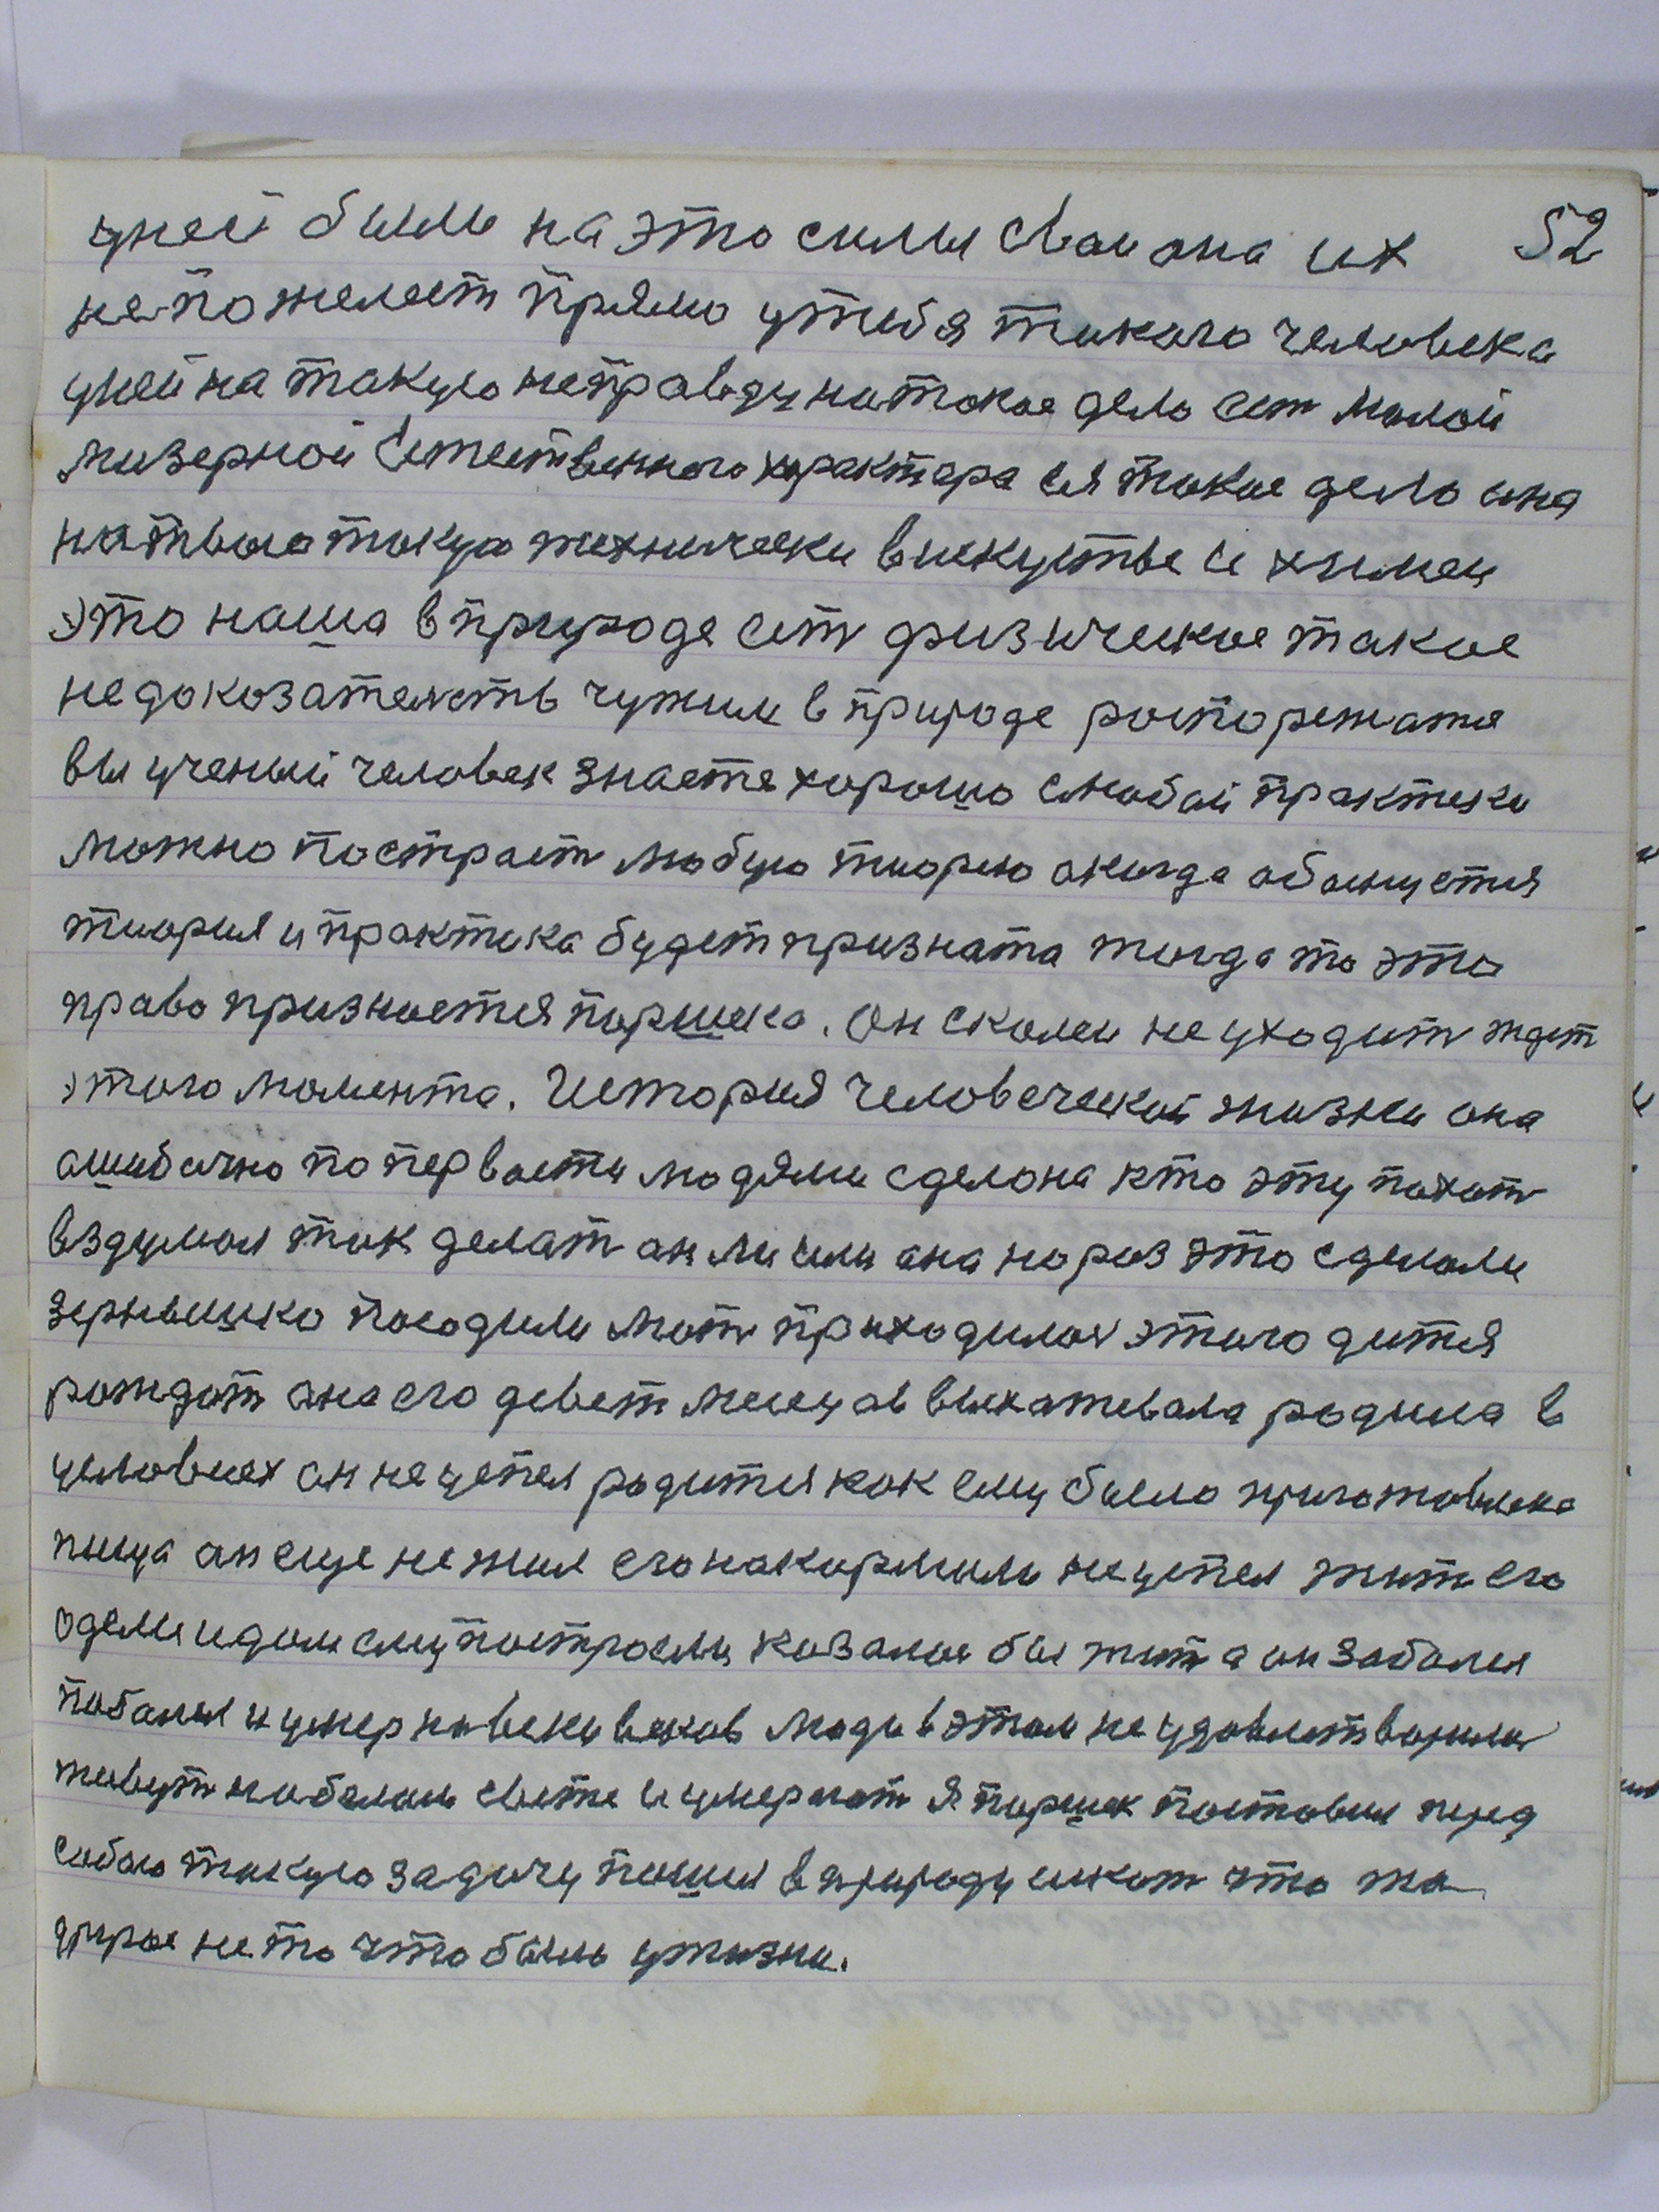 уней были на это силы Свои она их 52
не пожелеет прямо утибя такого человека
уней на такую неправду натокое дело Сет малой
мизерной Естественного характера ея такое дело она
натвою такую технически вискустве и химеи
это наша в природе ест физическое такое
недоказателств чужим в природе роспорежатя
вы ученый человек знаете хорошо слюбой практики
можно построит любую тиорею а когда обоснуется
тиория и практика будет призната тогда то это
право признается поршека. Он скалеи не уходит ждет
этого момента. История человеческой жизни она
ашибочно по первости людями сделона кто эту пахот
вздумал так делат он ли или она нораз это сделали
зернышко посодили мат приходилос этого дитя
рождат она его девет месецов выхатевала родила в
условиех он не успел родится как ему было приготовлена
пища он еще не жил его накормили не успел жит его
одели и дом ему построели козалос бы жит а он заболел
поболел и умер на веки веков люди в этом не удовлетворилис
живут на белом свете и умерают Я паршек поставил перед
собою такую задачу пошел в природу искат что та
другое не то что было ужизни.